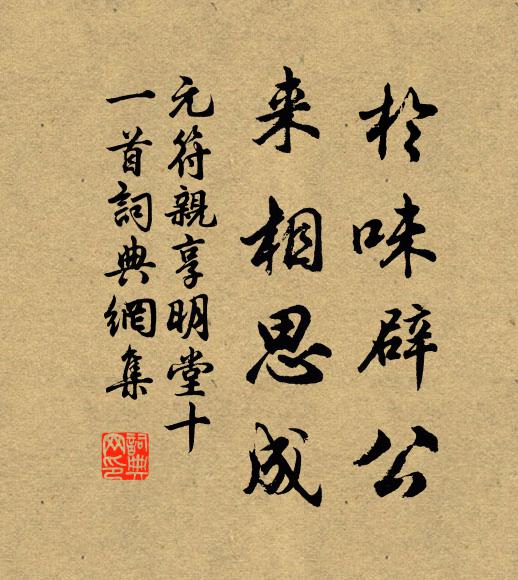 於味辟公
来相思成
元符親享明堂十
一首詞典網集
詞典
网印